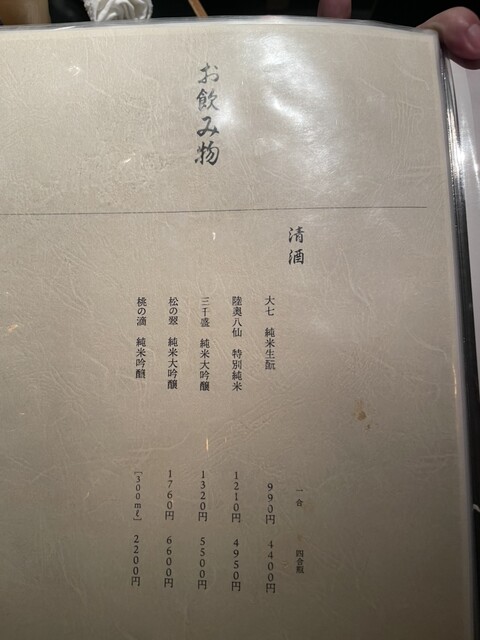 お飲み物
清酒
一合 四合瓶
大七 純米生酛 990円 4400円
陸奥八仙 特別純米 1210円 4950円
三千盛 純米大吟醸 1320円 5500円
松の翠 純米大吟醸 1760円 6600円
桃の滴 純米吟醸 [300ml] 2200円